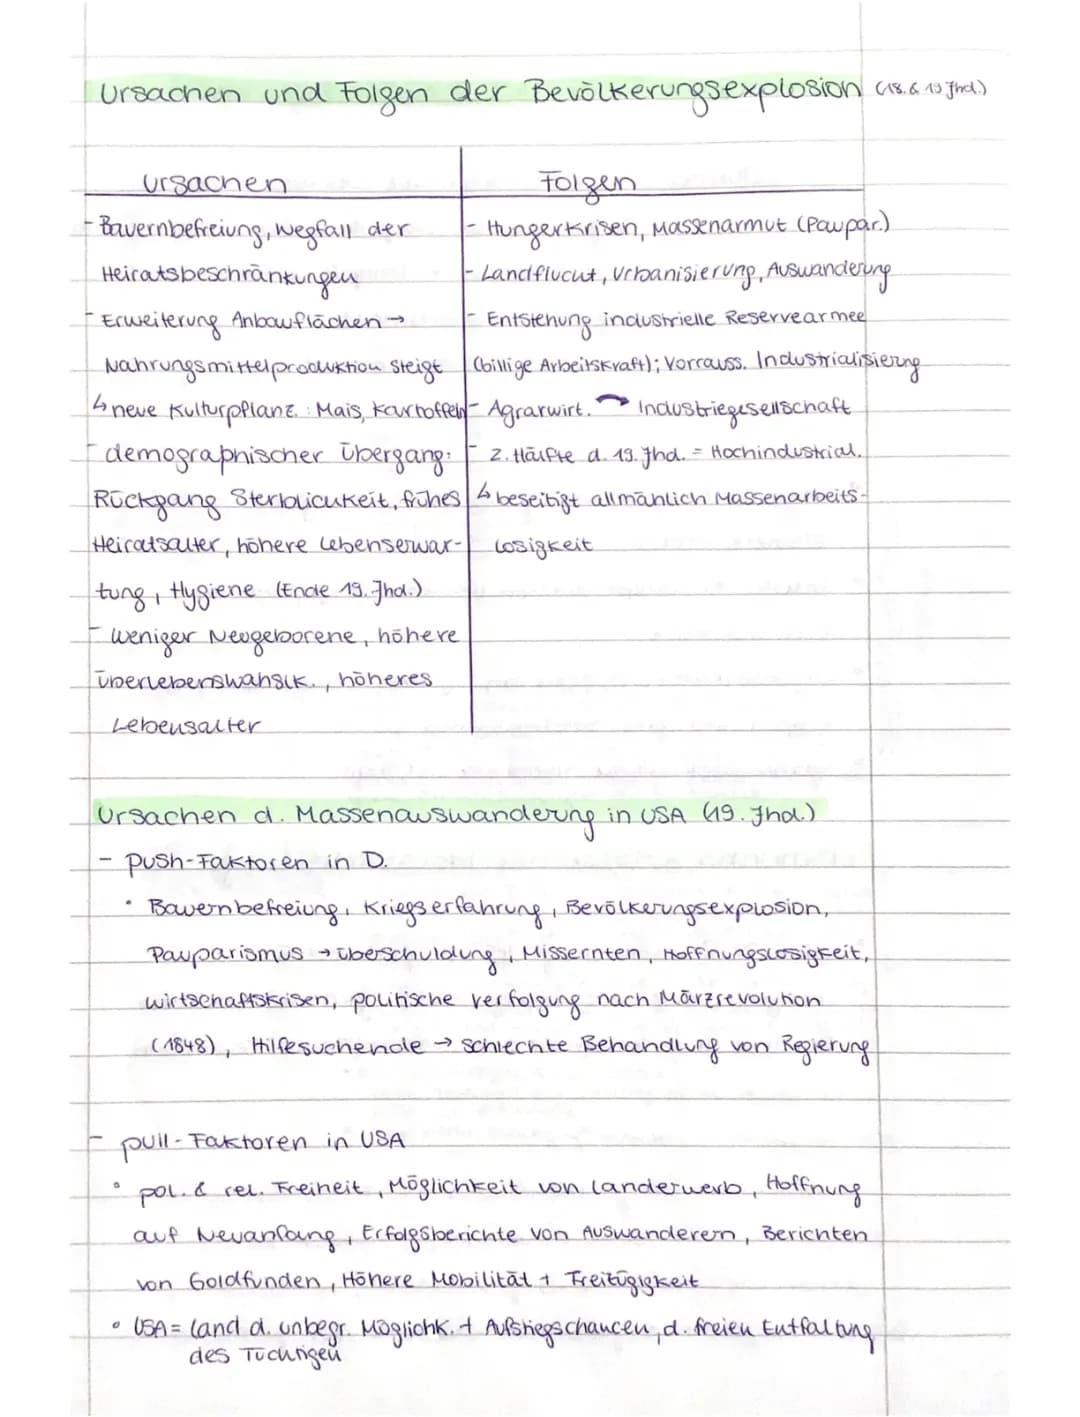 Ursachen und Folgen der Bevölkerungsexplosion (18. & 19 Jhd.)
Ursachen
- Bauernbefreiung, Wegfall der
Heiratsbeschränkungen
- Erweiterung Anbauflächen →
Nahrungsmittelproduktion steigt
↳ neue Kulturpflanz.: Mais, Kartoffeln
- demographischer Übergang:
Rückgang Sterblichkeit, frühes
Heiratsalter, höhere Lebenserwar-
tung, Hygiene (Ende 19. Jhd.)
- weniger Neugeborene, höhere
Überlebenswahslk., höheres
Lebensalter
Folgen
- Hungerkrisen, Massenarmut (Paupar.)
- Landflucht, Urbanisierung, Auswanderung
- Entstehung industrielle Reservearmee
(billige Arbeitskraft); Vorrauss. Industrialisierung
- Agrarwirt. → Industriegesellschaft
- 2. Hälfte d. 19. Jhd. = Hochindustrial.
↳ beseitigt allmählich Massenarbeits-
losigkeit
Ursachen d. Massenauswanderung in USA (19. Jhd.)
- push-Faktoren in D.
• Bauernbefreiung, Kriegserfahrung, Bevölkerungsexplosion,
Pauparismus → Überschuldung, Missernten, Hoffnungslosigkeit,
wirtschaftskrisen, politische verfolgung nach Märzrevolution
(1848), Hilfesuchende → schlechte Behandlung von Regierung
- pull-Faktoren in USA
• pol. & rel. Freiheit, Möglichkeit von landerwerb, Hoffnung
auf Neuanfang, Erfolgsberichte von Auswanderern, Berichten
von Goldfunden, Höhere Mobilität + Freizügigkeit
• USA = land d. unbegr. Möglichk. + Aufstiegschancen, d. freien Entfaltung
des Tüchtigen